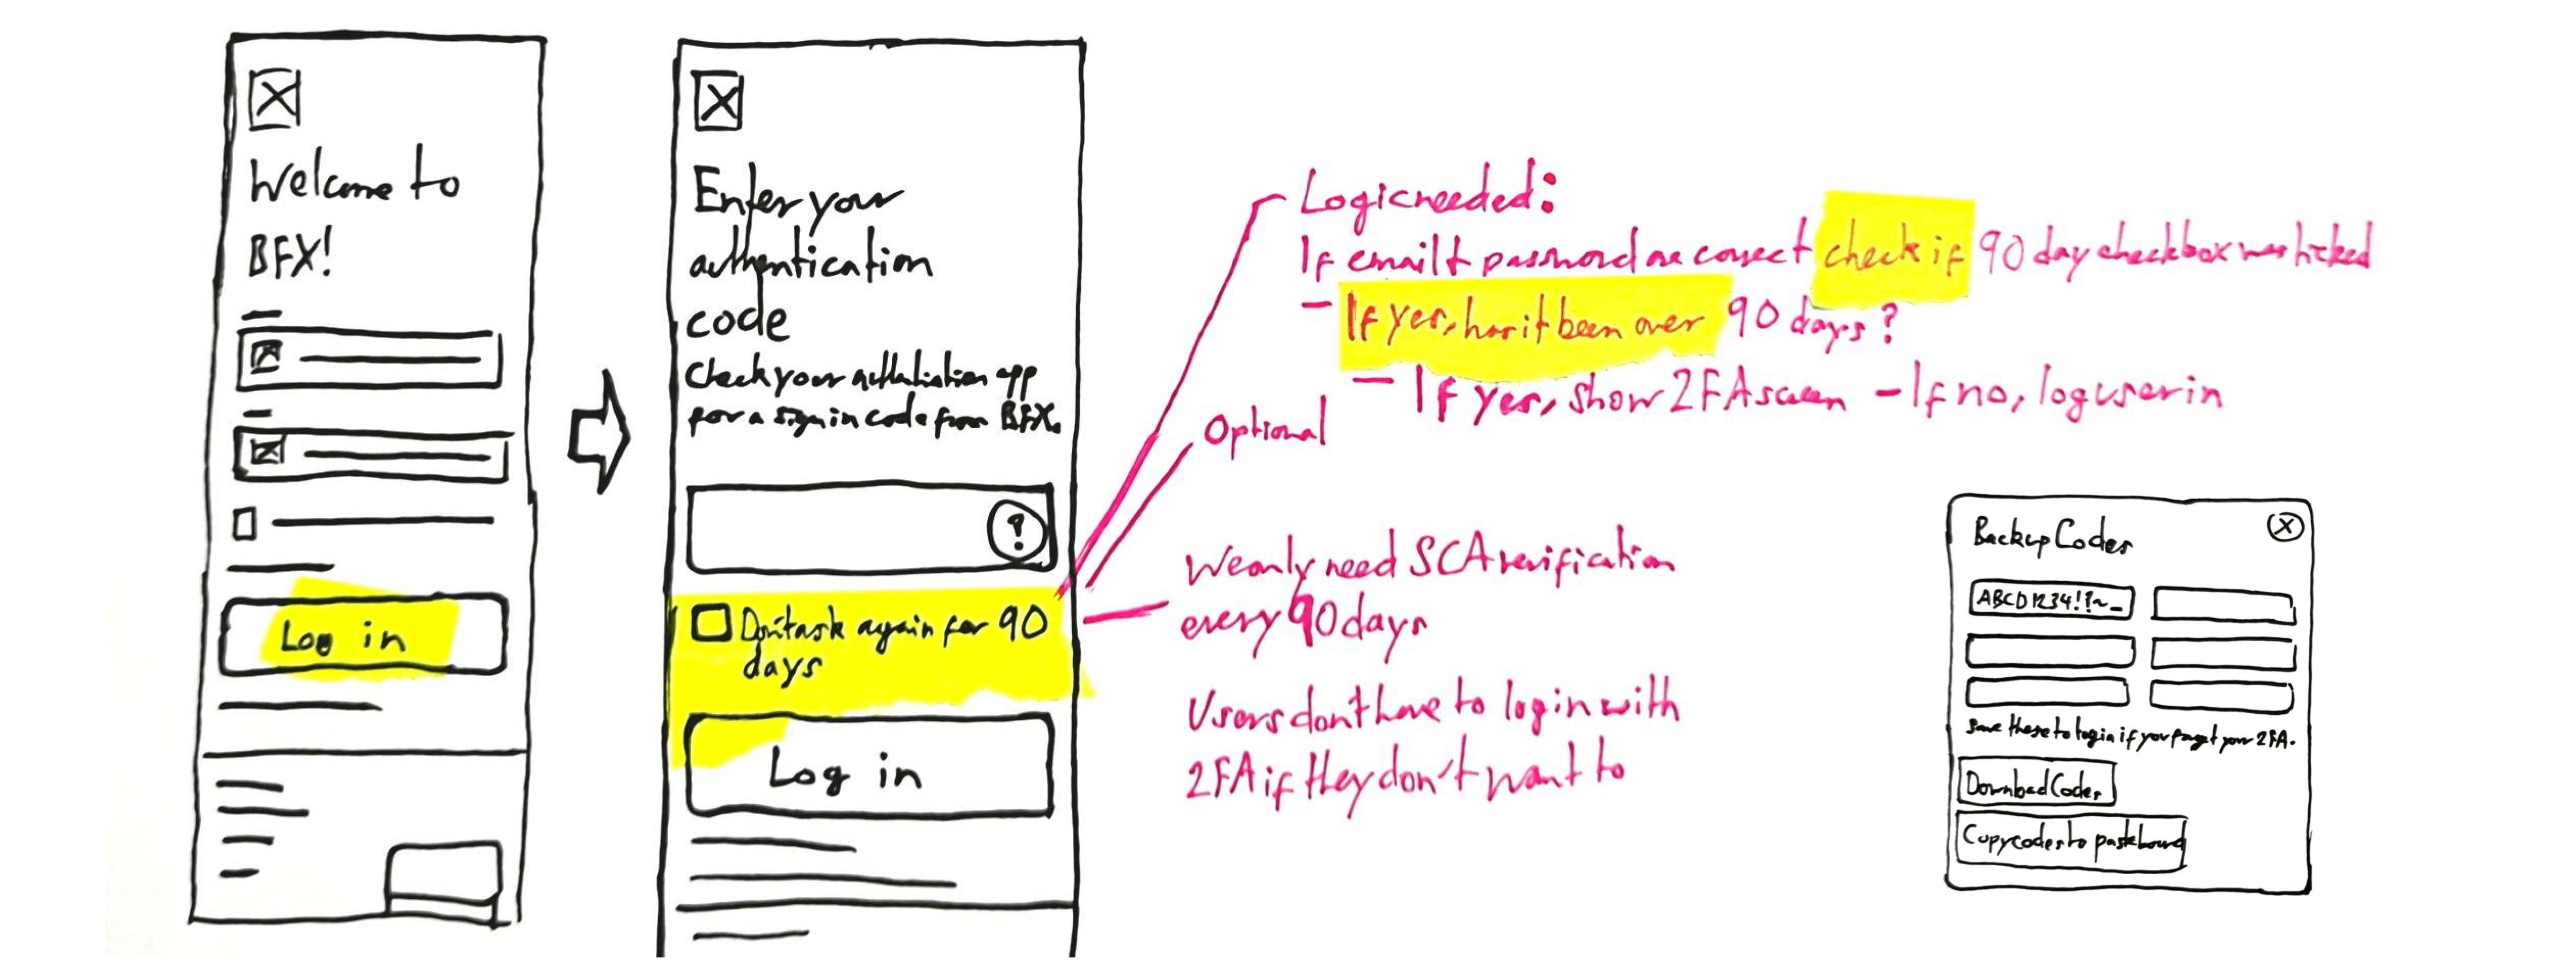 Welcome to
BFX!
Log in
Enter your
authentication
code
Check your app
for a sign in code from BFX.
?
Don't ask again for 90
days
Log in
Logic needed:
If email + password are correct check if 90 day checkbox was ticked
- If yes, has it been over 90 days?
- If yes, show 2FA screen - If no, log user in
Optional
We only need SCA verification
every 90 days
Users don't have to log in with
2FA if they don't want to
Backup Codes
ABCD1234!?~_
save these to login if you forget your 2FA.
Download Codes
Copy codes to pasteboard